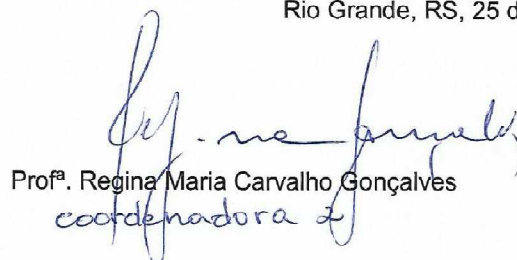 Rio Grande, RS, 25 d
Profª. Regina Maria Carvalho Gonçalves
coordenadora